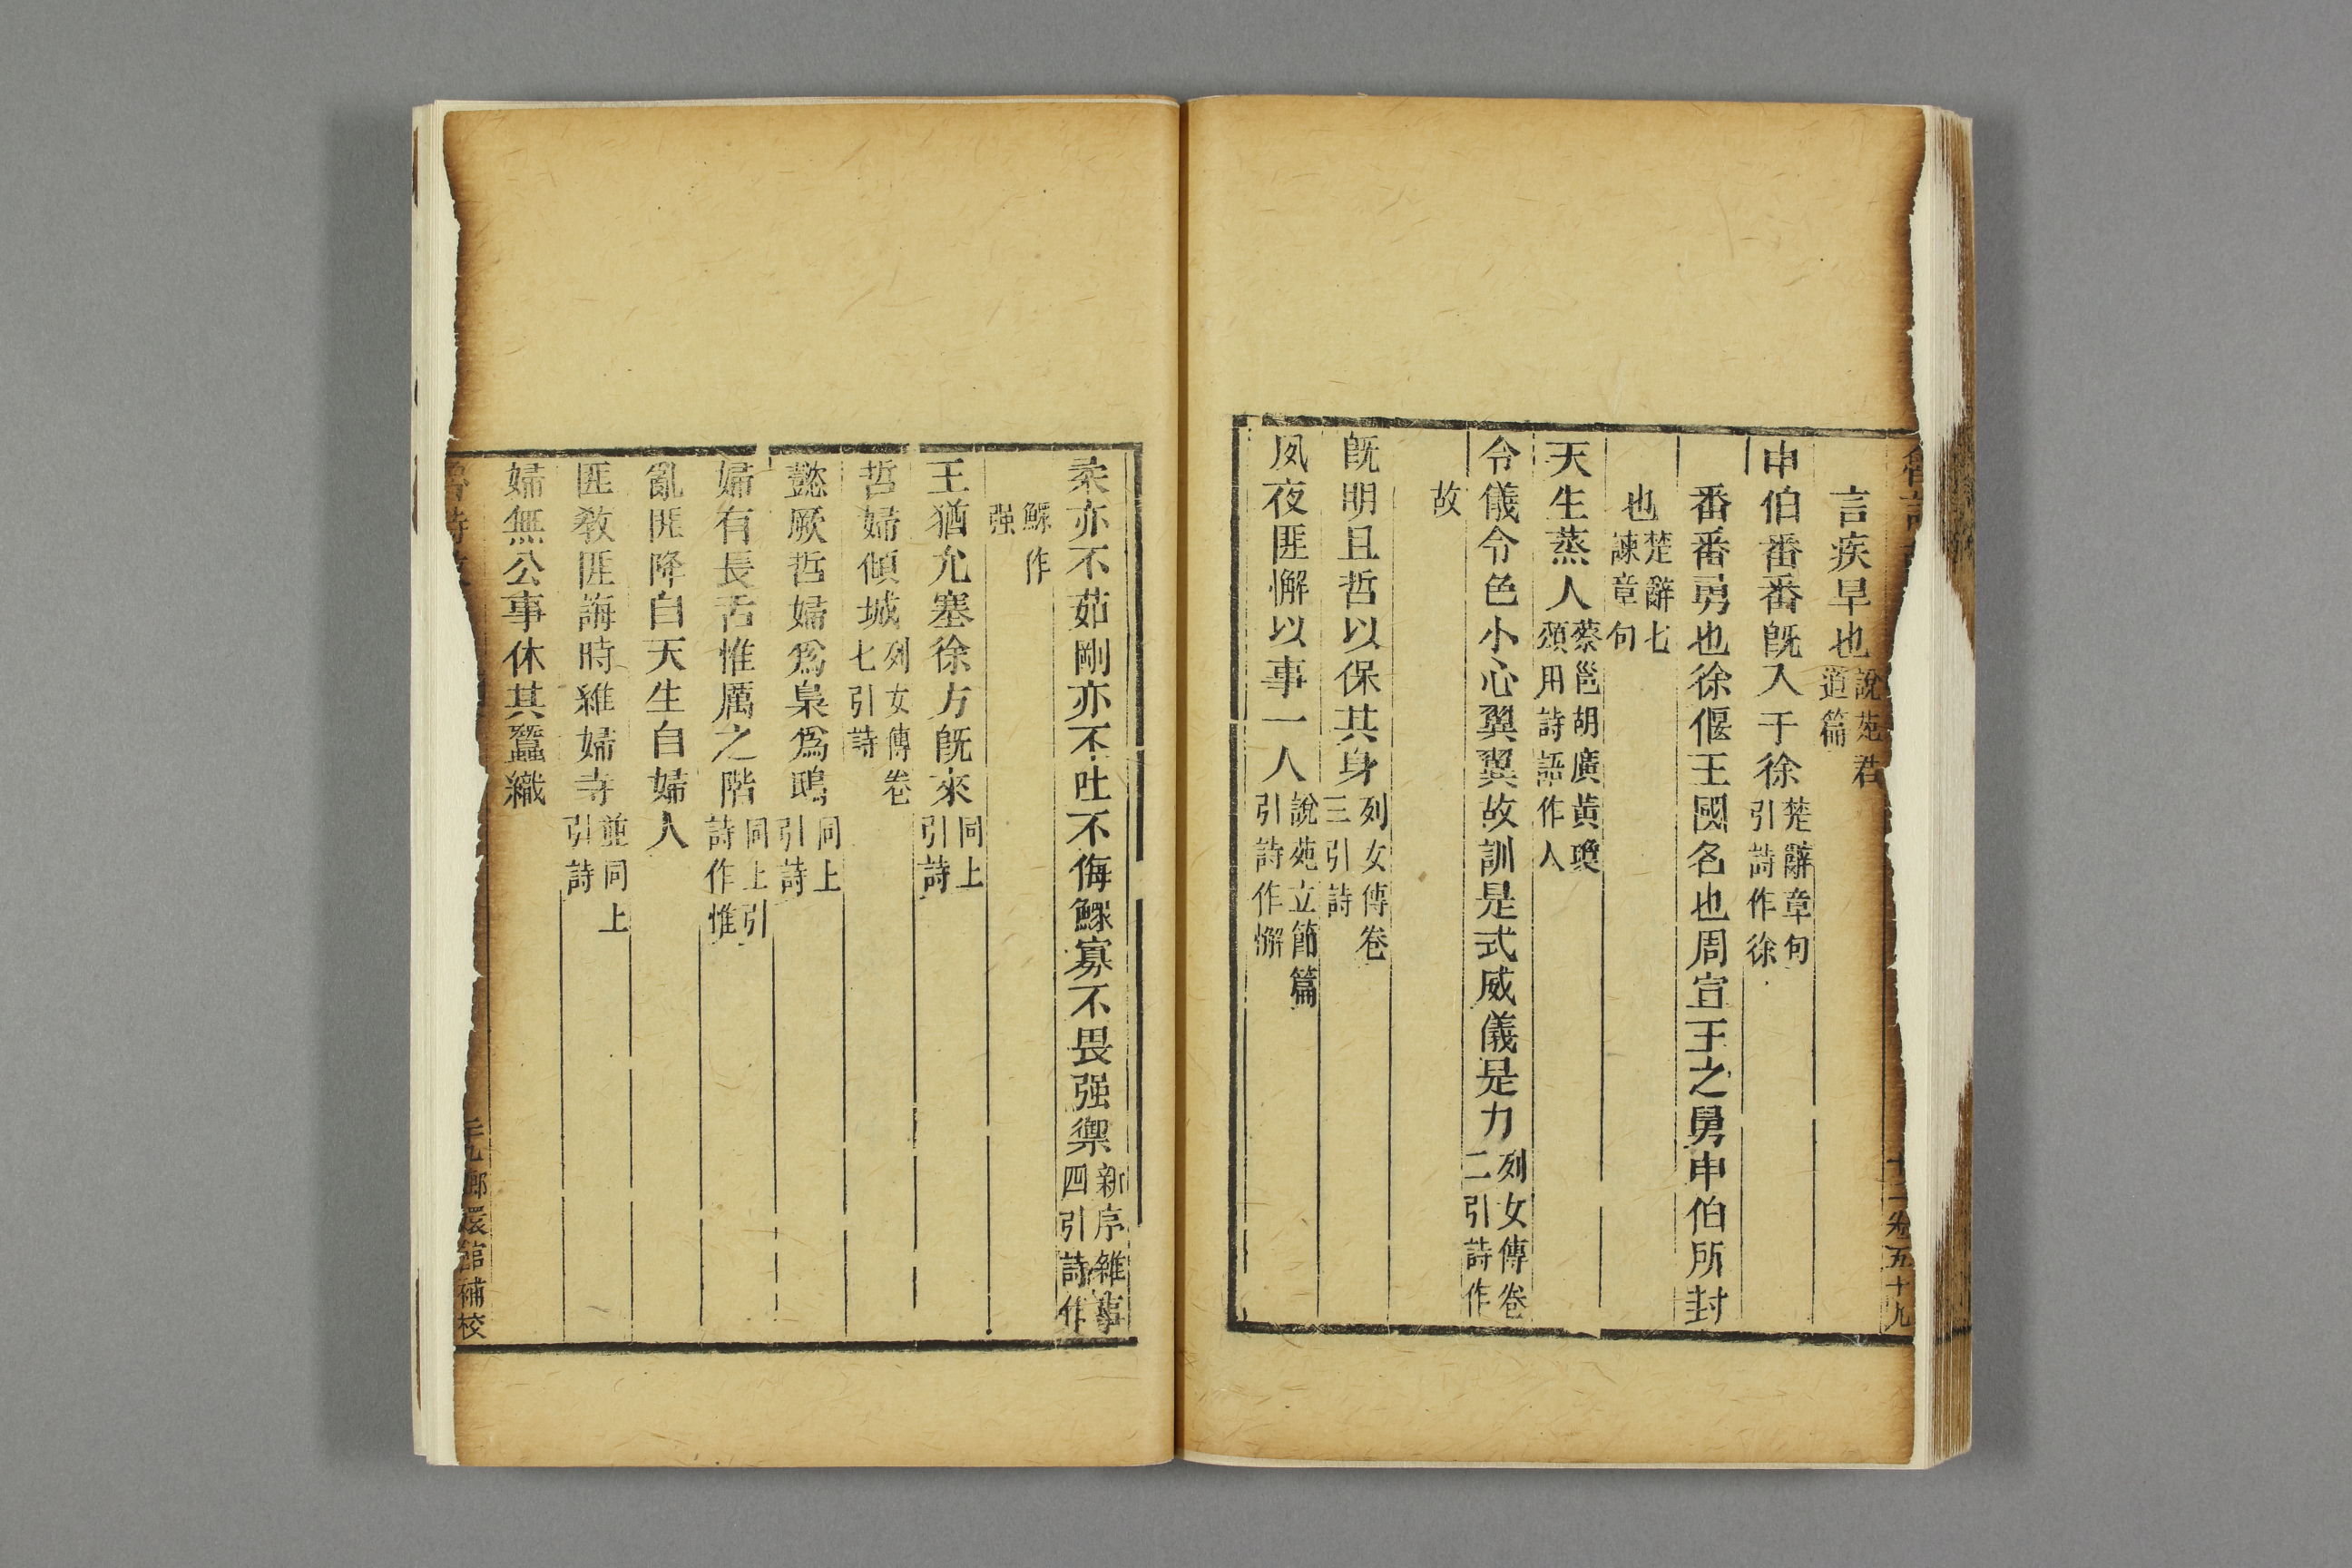 十一卷五十九
言疾早也說苑君道篇
申伯番番旣入于徐楚辭章句引詩作徐
番番勇也徐偃王國名也周宣王之舅申伯所封
也楚辭七諫章句
天生蒸人蔡邕胡廣黃瓊頌用詩語作人
令儀令色小心翼翼故訓是式威儀是力列女傳卷二引詩作
故
旣明且哲以保其身列女傳卷三引詩
夙夜匪懈以事一人說苑立節篇引詩作懈
柔亦不茹剛亦不吐不侮鰥寡不畏强禦新序雜事四引詩作
鰥作强
王猶允塞徐方旣來同上引詩
哲婦傾城列女傳卷七引詩
懿厥哲婦爲梟爲鴟同上引詩
婦有長舌惟厲之階同上引詩作惟
亂匪降自天生自婦人
匪教匪誨時維婦寺並同上引詩
婦無公事休其蠶織
嬛館補校